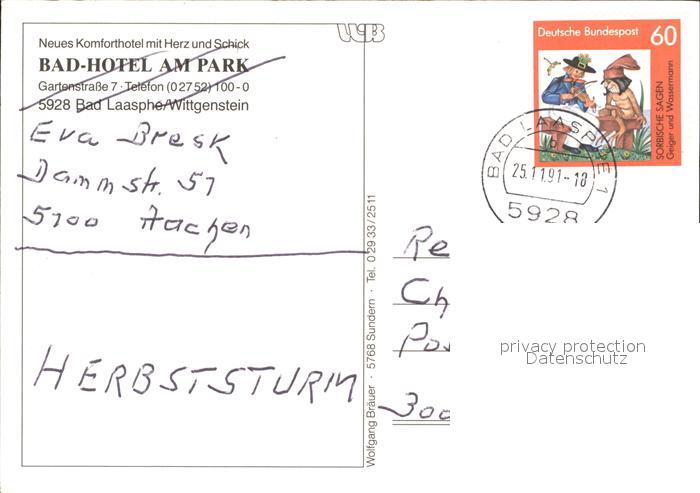 Neues Komforthotel mit Herz und Schick
BAD-HOTEL AM PARK
Gartenstraße 7 · Telefon (02752) 100-0
5928 Bad Laasphe/Wittgenstein
Eva Bresk
Dammstr. 51
5100 Aachen
HERBSTSTURM
Wolfgang Bräuer · 5768 Sundern · Tel. 02933/2511
WGB
Deutsche Bundespost 60
SORBISCHE SAGEN
Geiger und Wassermann
BAD LAASPHE 1
b
25.11.91-18
5928
Re
Ch
Pos
300
privacy protection
Datenschutz